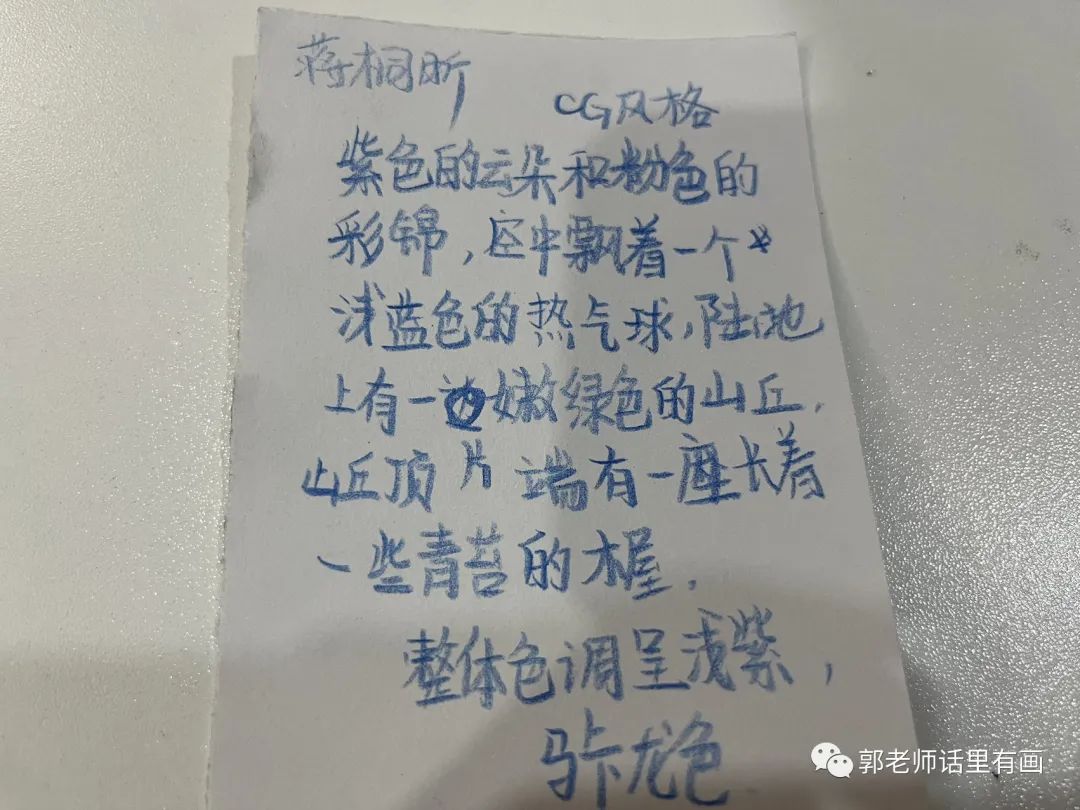 蒋桐昕
CG风格
紫色的云朵和粉色的
彩锦，空中飘着一个
浅蓝色的热气球，陆地
上有一边嫩绿色的山丘，
山丘顶片端有一座长着
一些青苔的木屋，
整体色调呈浅紫，
马卡龙色
郭老师话里有画